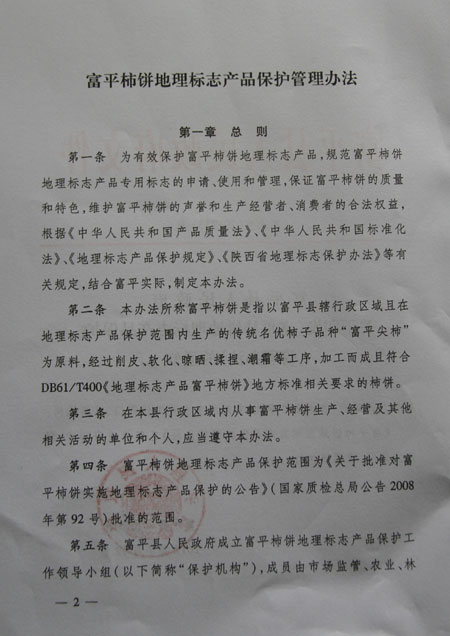 富平柿饼地理标志产品保护管理办法
第一章 总 则
第一条 为有效保护富平柿饼地理标志产品,规范富平柿饼
地理标志产品专用标志的申请、使用和管理,保证富平柿饼的质量
和特色,维护富平柿饼的声誉和生产经营者、消费者的合法权益,
根据《中华人民共和国产品质量法》、《中华人民共和国标准化
法》、《地理标志产品保护规定》、《陕西省地理标志保护办法》等有
关规定,结合富平实际,制定本办法。
第二条 本办法所称富平柿饼是指以富平县辖行政区域且在
地理标志产品保护范围内生产的传统名优柿子品种“富平尖柿”
为原料,经过削皮、软化、晾晒、揉捏、潮霜等工序,加工而成且符合
DB61/T400《地理标志产品富平柿饼》地方标准相关要求的柿饼。
第三条 在本县行政区域内从事富平柿饼生产、经营及其他
相关活动的单位和个人,应当遵守本办法。
第四条 富平柿饼地理标志产品保护范围为《关于批准对富
平柿饼实施地理标志产品保护的公告》(国家质检总局公告2008
年第92号)批准的范围。
第五条 富平县人民政府成立富平柿饼地理标志产品保护工
作领导小组(以下简称“保护机构”),成员由市场监管、农业、林
— 2 —